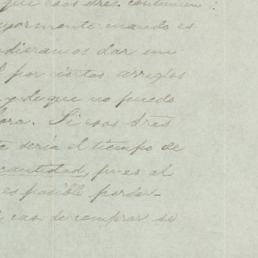 que esos tres continuen:
ayormente cuando es
udieramos dar un
l por estos arreglos
y de que no puedo
ora. Si esos tres
a seria el tiempo de
cantidad, pues al
es posible perder
caso de comprar se